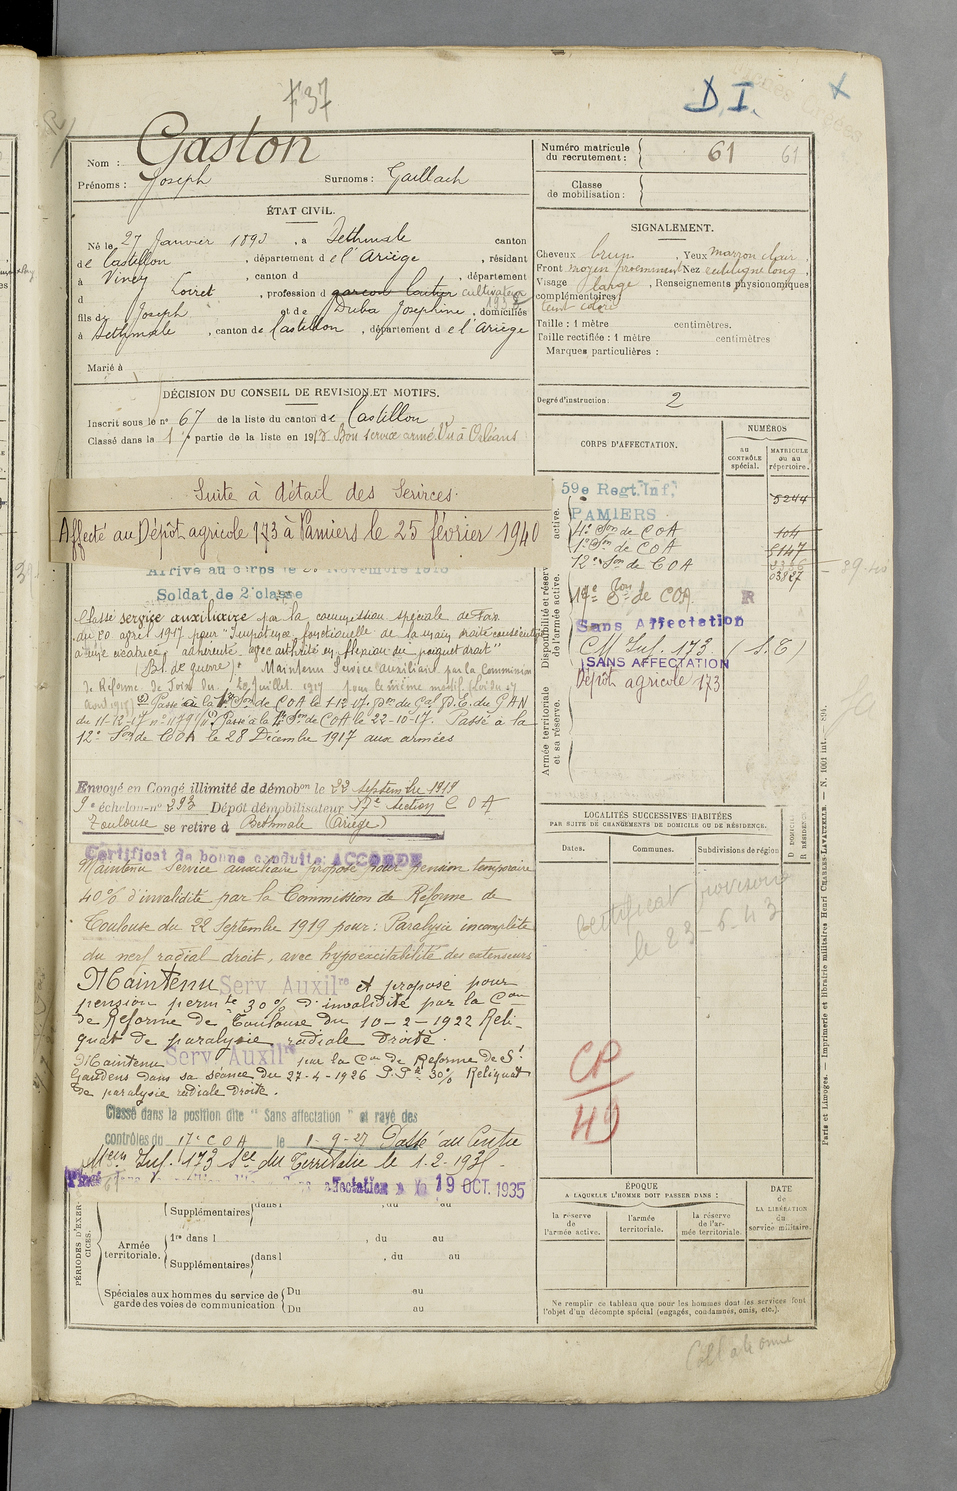 F 37
D.I.
Gaston
Nom :
Prénoms : Joseph Surnoms : Gaillach
ÉTAT CIVIL.
Né le 27 Janvier 1893, à Bethmale canton
de Castillon, département de l'Ariège, résidant
à Viney, canton d , département
d Loiret, profession d garcon laitier cultivateur
1932
fils de Joseph et de Duba Josephine, domiciliés
à Bethmale, canton de Castillon, département de l'Ariège
Marié à
DÉCISION DU CONSEIL DE REVISION ET MOTIFS.
Inscrit sous le n° 67 de la liste du canton de Castillon
Classé dans la 1re partie de la liste en 1913. Bon service armé. Vu à Orléans
Suite à détail des Services.
Affecté au Dépôt agricole 173 à Pamiers le 25 février 1940
Arrivé au corps le Novembre 1913
Soldat de 2e classe
Classé service auxiliaire par la commission spéciale de Foix
du 20 avril 1917 pour "Impotence fonctionelle de la main droite consécutive
à une cicatrice adhérente avec arthrite en flexion du poignet droit"
(Bl. de guerre). Maintenu Service auxiliaire par la Commission
de Réforme de Foix du 20 Juillet 1917 pour le même motif
Passé à la Son de COA le 1-12-17. D.E. du G.A.N
du 11-12-17 n° 11791 Passé à la Son de COA le 22-10-17. Passé à la
12e Son de COA le 28 Décembre 1917 aux armées
Envoyé en Congé illimité de démobon le 22 septembre 1919
9e échelon n° 293 Dépôt démobilisateur 17e section C O A
Toulouse se retire à Bethmale (Ariège)
Certificat de bonne conduite ACCORDÉ
Maintenu service auxiliaire proposé pour pension temporaire
40% d'invalidité par la Commission de Réforme de
Toulouse du 22 Septembre 1919 pour : Paralysie incomplète
du nerf radial droit, avec hypoexcitabilité des extenseurs
Maintenu Serv Auxilre et proposé pour
pension permte 30% d'invalidité par la Con
de Réforme de Toulouse du 10-2-1922 Reli-
quat de paralysie radiale droite.
Maintenu Serv Auxilre par la Con de Réforme de St
Gaudens dans sa séance du 27-4-1926 P.P. 30% Reliquat
de paralysie radiale droite.
Classé dans la position dite "Sans affectation" et rayé des
contrôles du 17e C O A le 1-9-27 Passé au Centre
Inf. 173 du Territoire le 1-2-193
affectation 19 OCT. 1935
PÉRIODES D'EXERCICES.
Supplémentaires dans l , du au
Armée territoriale. 1re dans l , du au
Supplémentaires dans l , du au
Spéciales aux hommes du service de garde des voies de communication Du au
Du au
Numéro matricule du recrutement : 61 61
Classe de mobilisation :
SIGNALEMENT.
Cheveux brun, Yeux marron clair,
Front moyen proeminent Nez rectiligne long,
Visage large, Renseignements physionomiques
complémentaires :
teint coloré
Taille : 1 mètre centimètres.
Taille rectifiée : 1 mètre centimètres
Marques particulières :
Degré d'instruction : 2
CORPS D'AFFECTATION.
NUMÉROS
AU CONTRÔLE spécial.
MATRICULE ou au répertoire.
Disponibilité et réserve de l'armée active.
Armée territoriale et sa réserve.
59e Regt. Inf. 5244
PAMIERS
4e Son de COA 104
1e Son de COA 5147
12e Son de COA
03827
17e Son de COA R
Sans Affectation
CM Inf. 173 (S.T)
SANS AFFECTATION
Dépôt agricole 173
LOCALITÉS SUCCESSIVES HABITÉES
PAR SUITE DE CHANGEMENTS DE DOMICILE OU DE RÉSIDENCE.
Dates. Communes. Subdivisions de région D DOMICILE R RÉSIDENCE
certificat provisoire
le 23-6-43
CP
49
ÉPOQUE
A LAQUELLE L'HOMME DOIT PASSER DANS :
la réserve de l'armée active.
l'armée territoriale.
la réserve de l'armée territoriale.
DATE de LA LIBÉRATION du service militaire.
Ne remplir ce tableau que pour les hommes dont les services font
l'objet d'un décompte spécial (engagés, condamnés, omis, etc.).
Paris et Limoges. — Imprimerie et librairie militaires Henri CHARLES-LAVAUZELLE. — N. 1001 int. — 894.